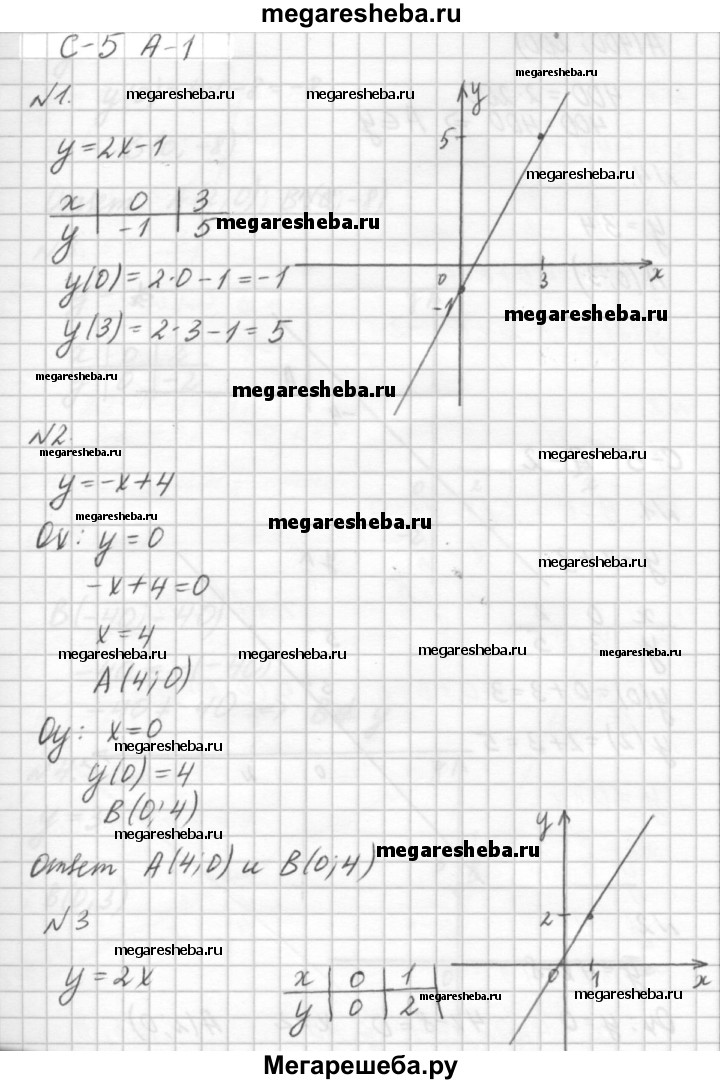 megaresheba.ru
С-5 А-1
megaresheba.ru
№1.
megaresheba.ru
megaresheba.ru
y
y=2x-1
5
megaresheba.ru
x | 0 | 3
y | -1 | 5
megaresheba.ru
y(0)=2·0-1=-1
0 3 x
-1
megaresheba.ru
y(3)=2·3-1=5
megaresheba.ru
megaresheba.ru
№2.
megaresheba.ru
megaresheba.ru
y=-x+4
megaresheba.ru
megaresheba.ru
Ox: y=0
megaresheba.ru
-x+4=0
x=4
megaresheba.ru
megaresheba.ru
megaresheba.ru
megaresheba.ru
A(4;0)
Oy: x=0
megaresheba.ru
y(0)=4
B(0;4)
megaresheba.ru
y
Ответ A(4;0) и B(0;4)
megaresheba.ru
№3
2
megaresheba.ru
y=2x
x | 0 | 1
y | 0 | 2
megaresheba.ru
0 1 x
megaresheba.ru
Мегарешеба.ру